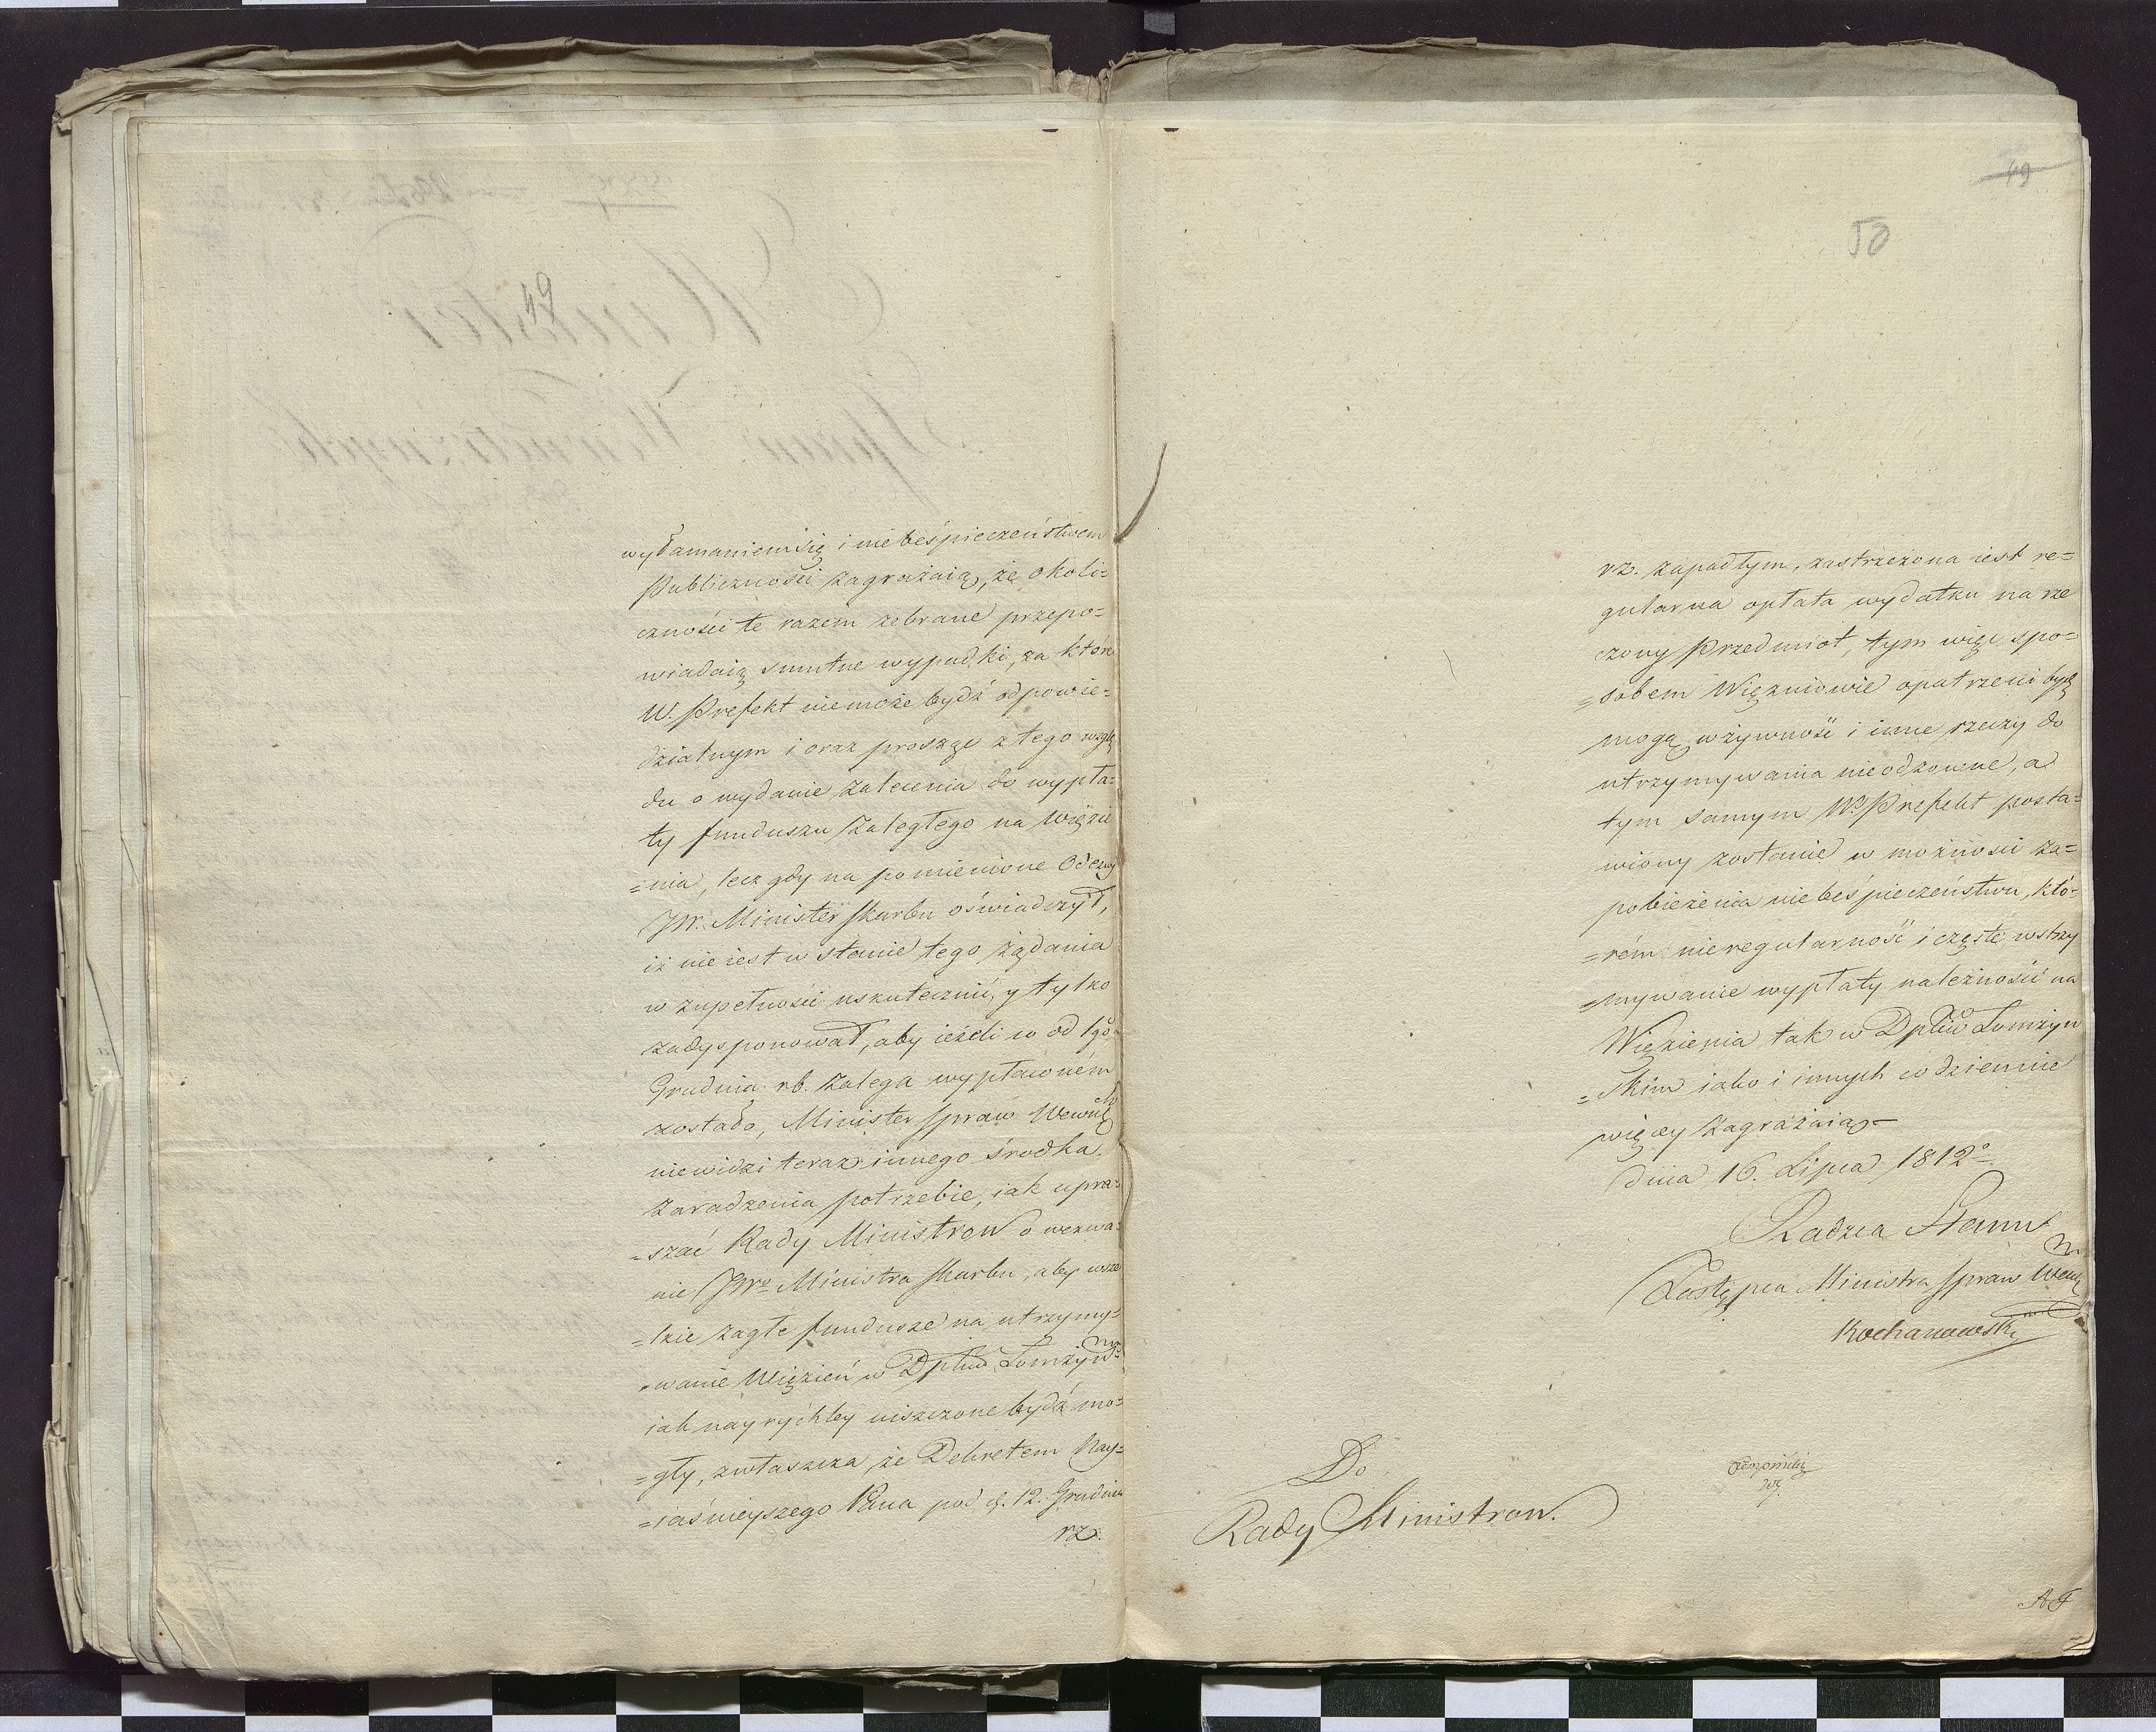 49
wyłamaniem się i niebeśpieczeństwem
Publiczności zagrażaią, że okoli=
czności te razem zebrane przepo=
wiadaią smutne wypadki, za które
W. Prefekt niemoże bydź odpowie=
dzialnym i oraz proszące z tego wzglę
du o wydanie zalecenia do wypła=
ty funduszu zaległego na więzie
=nia, lecz gdy na pomienione Odezwy
JW. Minister Skarbu oświadczył,
iż nie iest w stanie tego żądania
w zupełności uskutecznić, y tylko
zadysponował, aby ieżeli co od 1go
Grudnia rb. zalega wypłaconém
zostało, Minister Spraw Wewnę
niewidzi teraz innego środka
zaradzenia potrzebie, iak upra=
=szać Rady Ministrow o wezwa=
nie JWo Ministra Skarbu, aby wsze
=lkie zagłe fundusze na utrzymy=
=wanie Więzień w Dptcie Łomżyń
iak nayrychley uiszczone bydź mo=
=gły, zwłaszcza, że Dekretem Nay=
=iaśnieyszego Pana pod d. 12. Grudnia
rz.
49
50
rz. zapadłym, zastrzeżona iest re=
gularna opłata wydatku na rze
czony Przedmiot, tym więc spo=
=sobem Więzniowie opatrzeni bydź
mogą w żywność i inne rzeczy do
utrzymywania nieodzowne, a
tym samym W. Prefekt posta=
wiony zostanie w możności za=
pobieżenia niebeśpieczeństwu, któ=
=rém nieregularność i częste wstrzy
=mywanie wypłaty należności na
Więzienia tak w Dptcie Łomżyń
=skim iako i innych codziennie
więcey zagrażaią=
dnia 16. Lipca 1812o
Radzca Stanu
Zastępca Ministra Spraw Wewnę
Kochanowski
Do
Rady Ministrow.